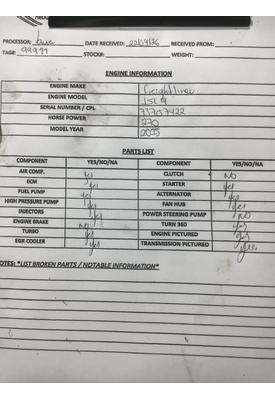 PROCESSOR: DATE RECEIVED: RECEIVED FROM:
TAG#: 99999 STOCK#: WEIGHT:
ENGINE INFORMATION
ENGINE MAKE freightliner
ENGINE MODEL ISL 9
SERIAL NUMBER / CPL 73707422
HORSE POWER 270
MODEL YEAR 2025
PARTS LIST
COMPONENT YES/NO/NA COMPONENT YES/NO/NA
AIR COMP. yes CLUTCH NO
ECM yes STARTER yes
FUEL PUMP yes ALTERNATOR yes
HIGH PRESSURE PUMP yes FAN HUB yes
INJECTORS yes POWER STEERING PUMP NO
ENGINE BRAKE no TURN 360 yes
TURBO yes ENGINE PICTURED yes
EGR COOLER yes TRANSMISSION PICTURED yes
OTES: *LIST BROKEN PARTS / NOTABLE INFORMATION*